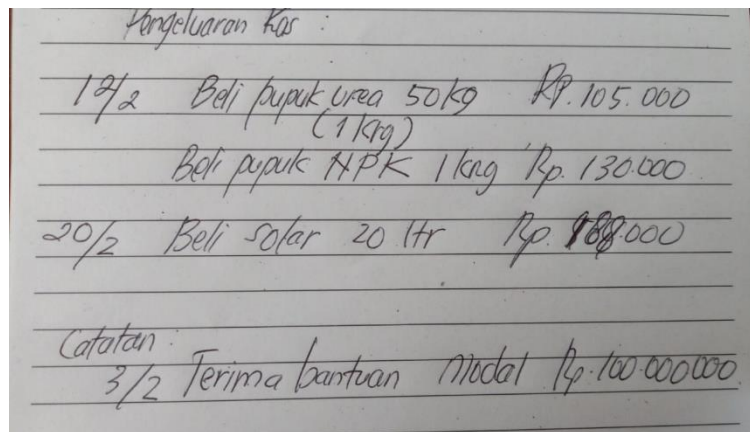 Pengeluaran Kas :
12/2 Beli pupuk urea 50kg Rp. 105.000
(1 krg)
Beli pupuk NPK 1 krng Rp. 130.000
20/2 Beli solar 20 ltr Rp. 188.000
Catatan :
3/2 Terima bantuan modal Rp. 100.000.000